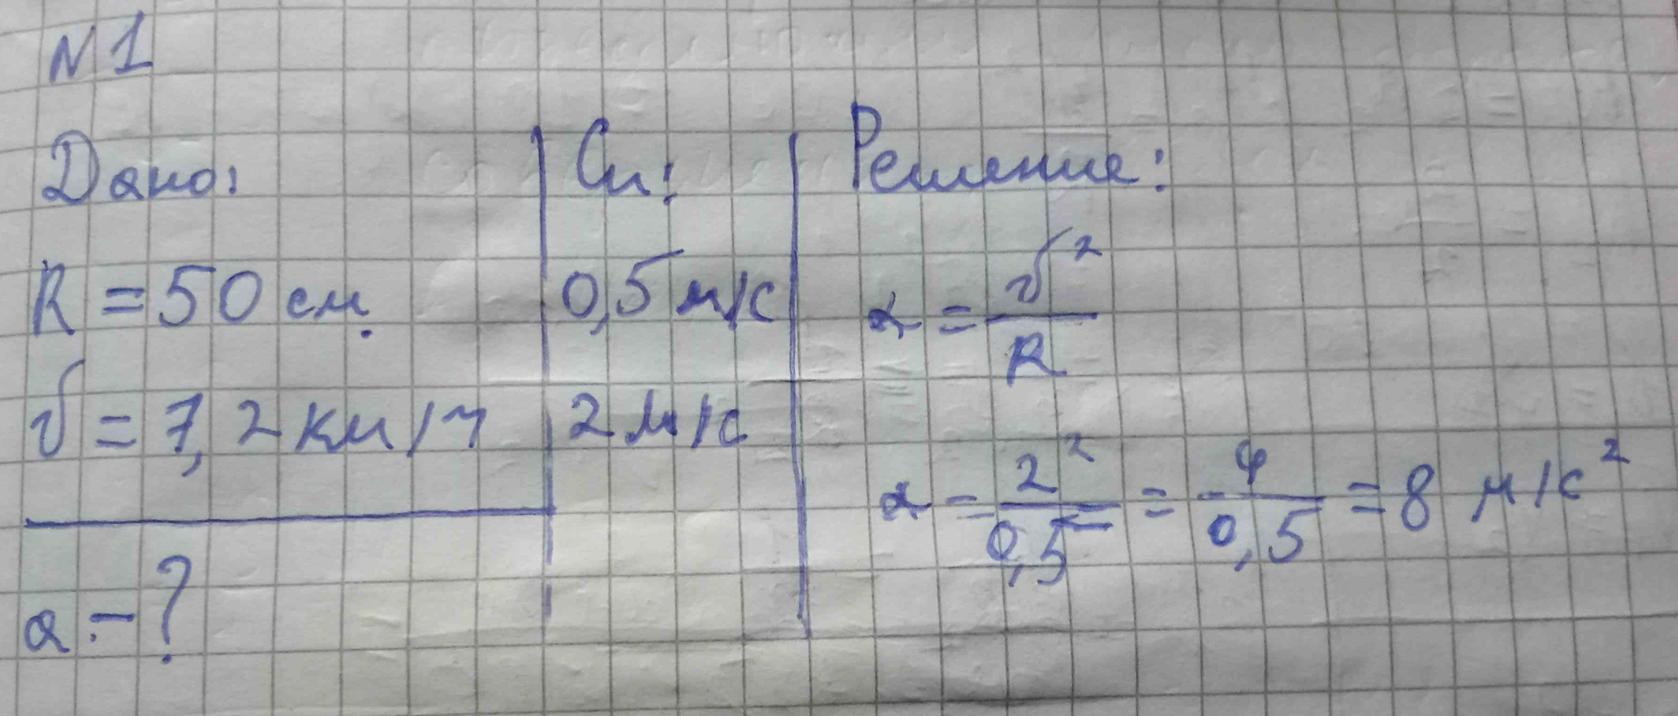 N 1
Дано:
R = 50 см.
v = 7,2 км/ч
a - ?
Си:
0,5 м/с
2 м/с
Решение:
a = v² / R
a = 2² / 0,5 = 4 / 0,5 = 8 м/с²